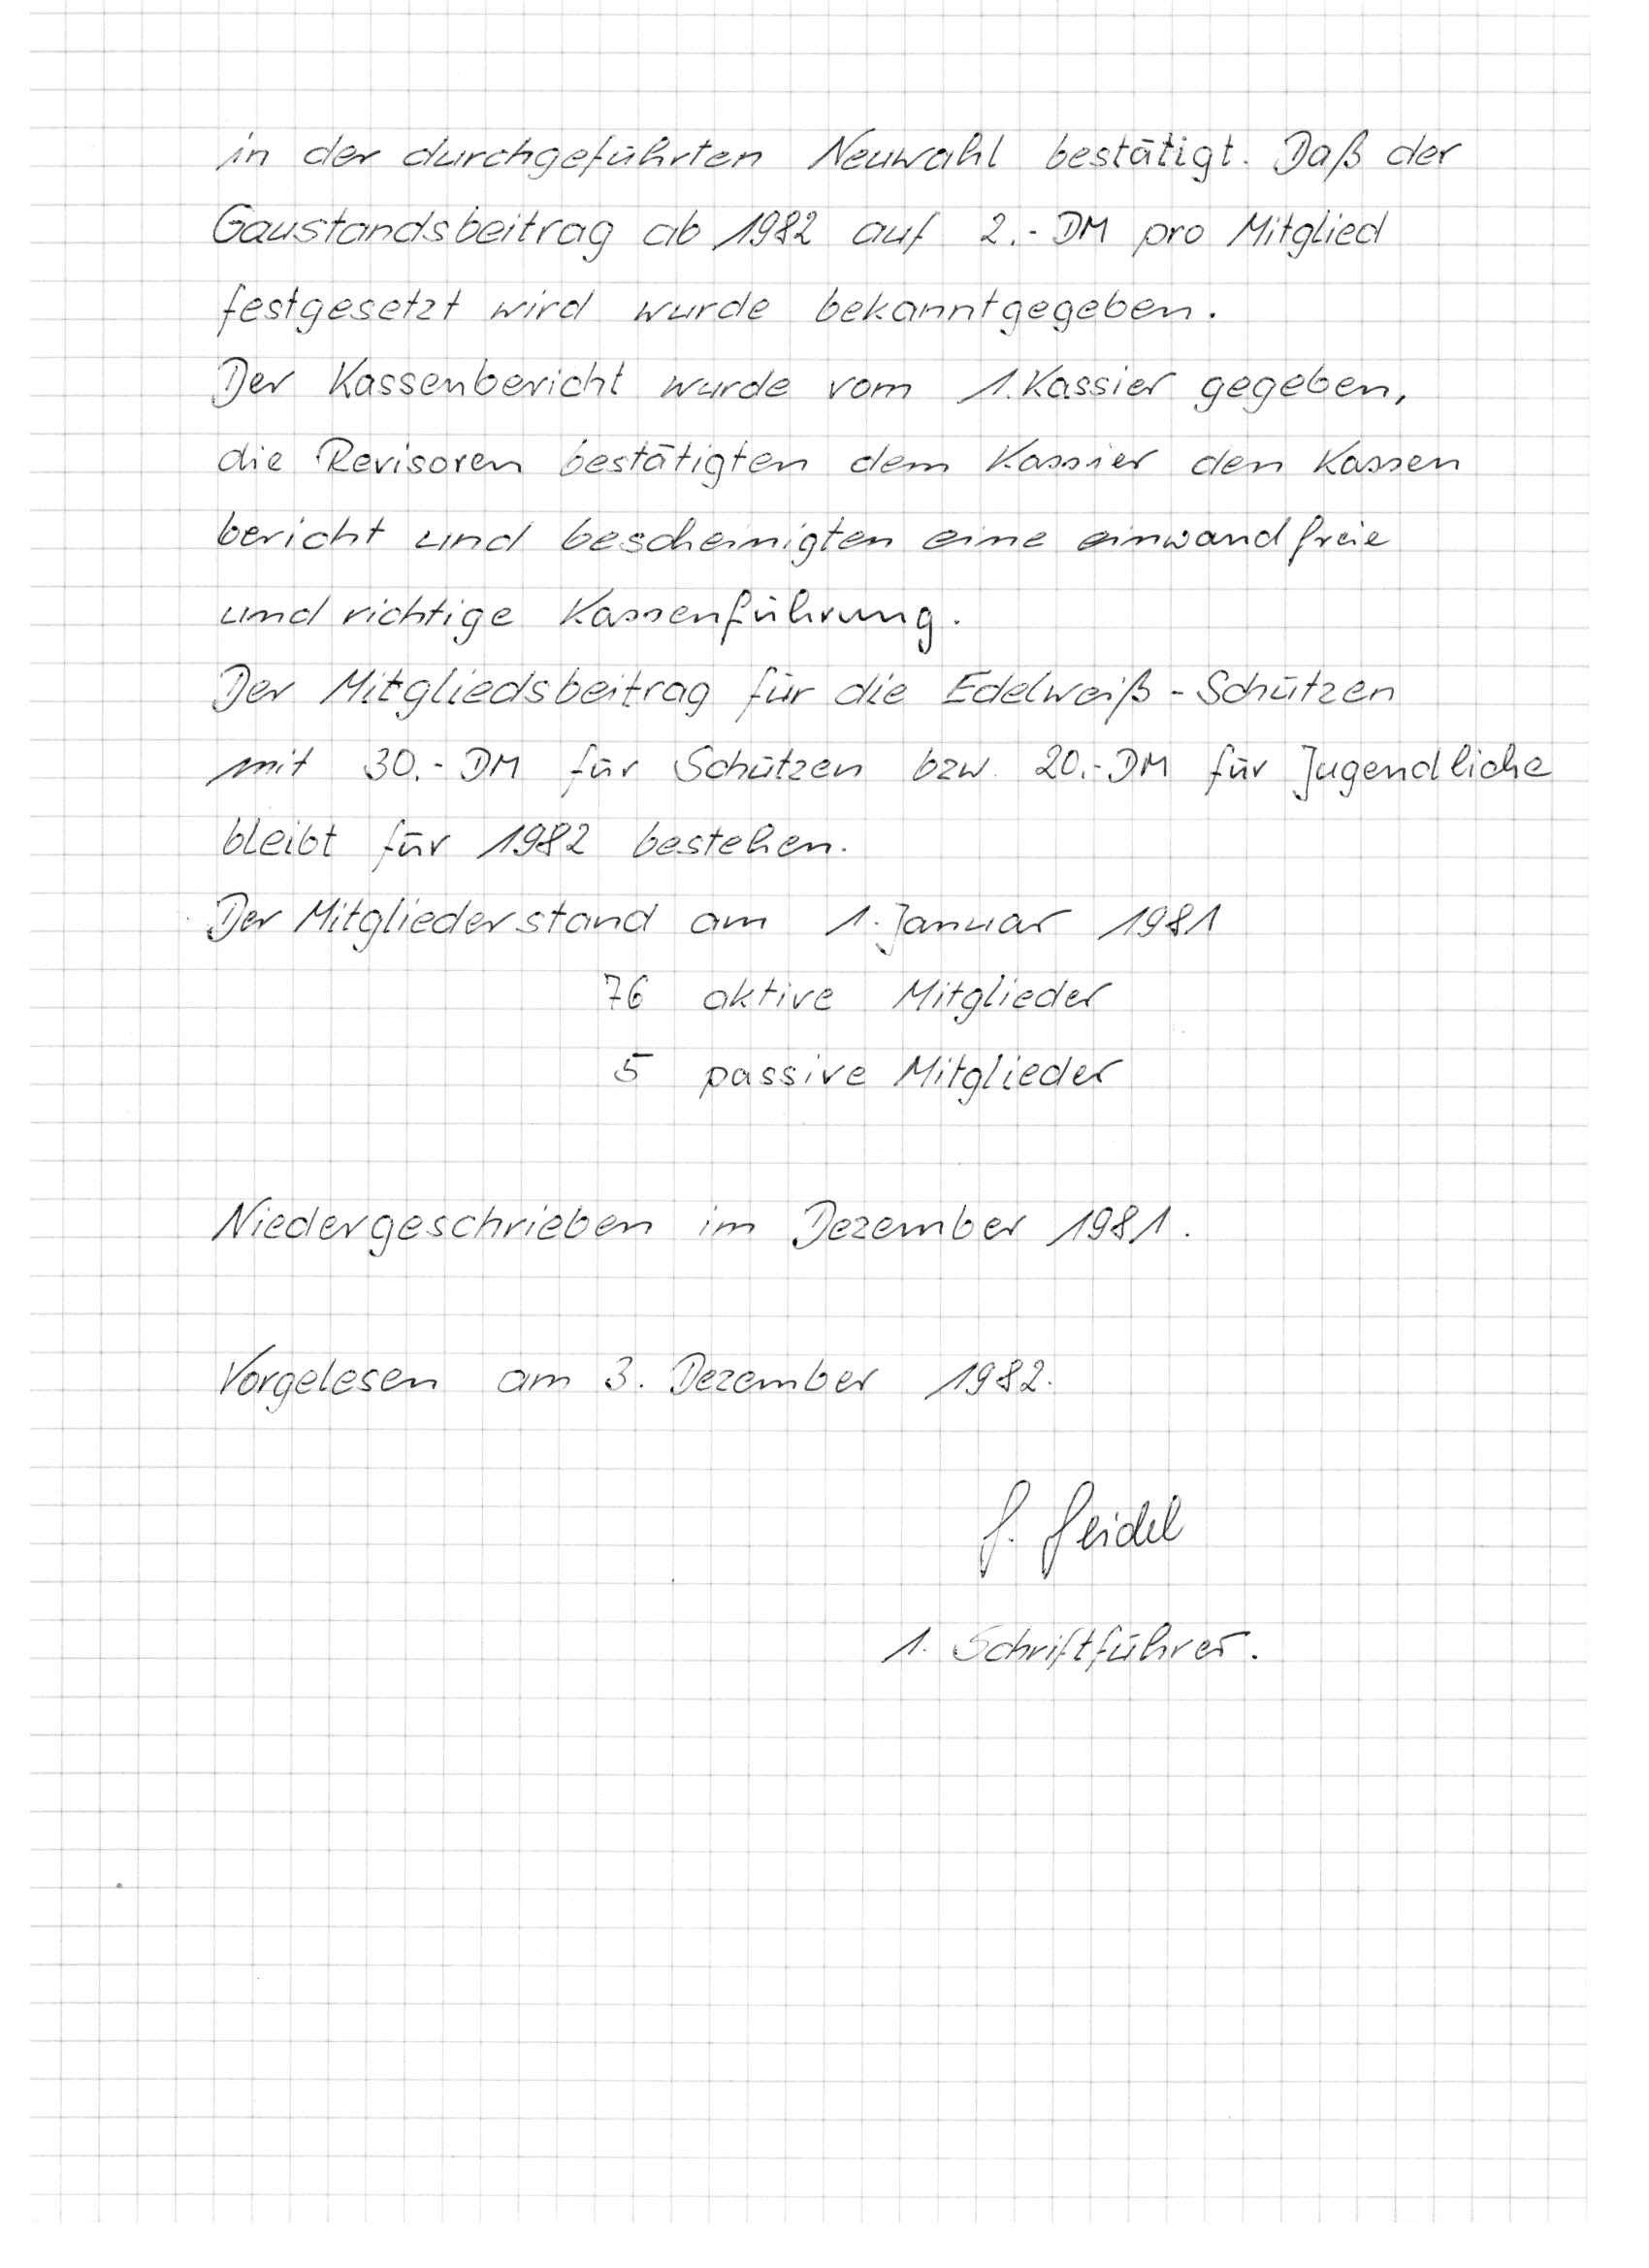 in der durchgeführten Neuwahl bestätigt. Daß der
Gaustandsbeitrag ab 1982 auf 2.- DM pro Mitglied
festgesetzt wird wurde bekanntgegeben.
Der Kassenbericht wurde vom 1. Kassier gegeben,
die Revisoren bestätigten dem Kassier den Kassen
bericht und bescheinigten eine einwandfreie
und richtige Kassenführung.
Der Mitgliedsbeitrag für die Edelweiß - Schützen
mit 30.- DM für Schützen bzw. 20.- DM für Jugendliche
bleibt für 1982 bestehen.
Der Mitgliederstand am 1. Januar 1981
76 aktive Mitglieder
5 passive Mitglieder
Niedergeschrieben im Dezember 1981.
Vorgelesen am 3. Dezember 1982.
Seidel
1. Schriftführer.